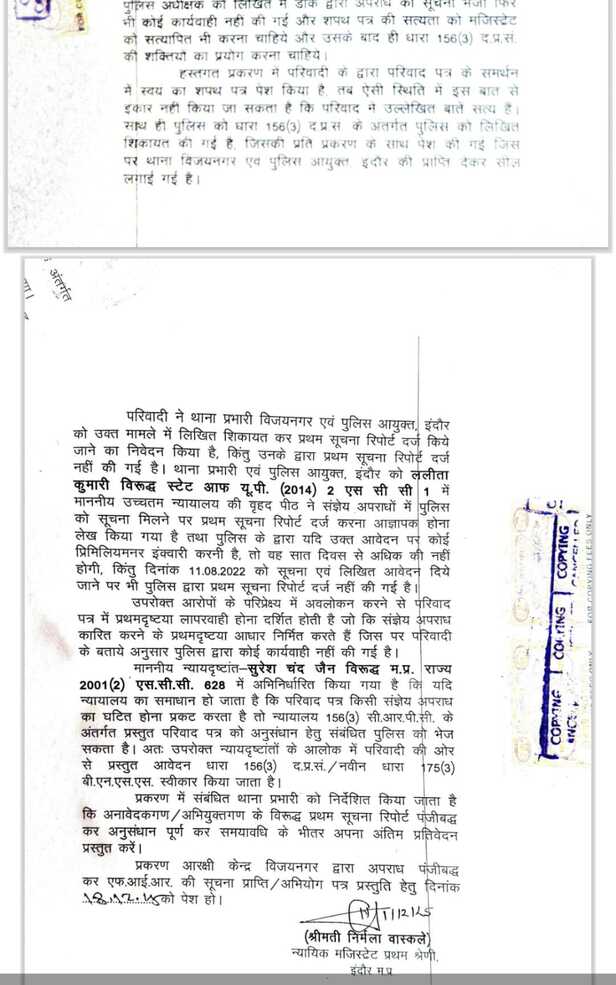 पुलिस अधीक्षक को लिखित में डाक द्वारा अपराध की सूचना भेजी फिर
भी कोई कार्यवाही नही की गई और शपथ पत्र की सत्यता को मजिस्ट्रेट
को सत्यापित भी करना चाहिये और उसके बाद ही धारा 156(3) द.प्र.सं.
की शक्तियों का प्रयोग करना चाहिये।
हस्तगत प्रकरण में परिवादी के द्वारा परिवाद पत्र के समर्थन
में स्वय का शपथ पत्र पेश किया है, तब ऐसी स्थिति में इस बात से
इंकार नही किया जा सकता है कि परिवाद मे उल्लेखित बाते सत्य है।
साथ ही पुलिस को धारा 156(3) द.प्र.स के अंतर्गत पुलिस को लिखित
शिकायत की गई है, जिसकी प्रति प्रकरण के साथ पेश की गई जिस
पर थाना विजयनगर एव पुलिस आयुक्त, इदौर की प्राप्ति देकर सील
लगाई गई है।
अंतर्गत
परिवादी ने थाना प्रभारी विजयनगर एवं पुलिस आयुक्त, इंदौर
को उक्त मामले में लिखित शिकायत कर प्रथम सूचना रिपोर्ट दर्ज किये
जाने का निवेदन किया है, किंतु उनके द्वारा प्रथम सूचना रिपोर्ट दर्ज
नहीं की गई है। थाना प्रभारी एवं पुलिस आयुक्त, इंदौर को ललीता
कुमारी विरूद्ध स्टेट आफ यू.पी. (2014) 2 एस सी सी 1 में
माननीय उच्चतम न्यायालय की वृहद पीठ ने संज्ञेय अपराधों में पुलिस
को सूचना मिलने पर प्रथम सूचना रिपोर्ट दर्ज करना आज्ञापक होना
लेख किया गया है तथा पुलिस के द्वारा यदि उक्त आवेदन पर कोई
प्रिमिलियमनर इंक्वारी करनी है, तो वह सात दिवस से अधिक की नहीं
होगी, किंतु दिनांक 11.08.2022 को सूचना एवं लिखित आवेदन दिये
जाने पर भी पुलिस द्वारा प्रथम सूचना रिपोर्ट दर्ज नहीं की गई है।
उपरोक्त आरोपों के परिप्रेक्ष्य में अवलोकन करने से परिवाद
पत्र में प्रथमदृष्टया लापरवाही होना दर्शित होती है जो कि संज्ञेय अपराध
कारित करने के प्रथमदृष्टया आधार निर्मित करते हैं जिस पर परिवादी
के बताये अनुसार पुलिस द्वारा कोई कार्यवाही नहीं की गई है।
माननीय न्यायदृष्टांत–सुरेश चंद जैन विरूद्ध म.प्र. राज्य
2001(2) एस.सी.सी. 628 में अभिनिर्धारित किया गया है कि यदि
न्यायालय का समाधान हो जाता है कि परिवाद पत्र किसी संज्ञेय अपराध
का घटित होना प्रकट करता है तो न्यायालय 156(3) सी.आर.पी.सी. के
अंतर्गत प्रस्तुत परिवाद पत्र को अनुसंधान हेतु संबंधित पुलिस को भेज
सकता है। अतः उपरोक्त न्यायदृष्टांतों के आलोक में परिवादी की ओर
से प्रस्तुत आवेदन धारा 156(3) द.प्र.सं./नवीन धारा 175(3)
बी.एन.एस.एस. स्वीकार किया जाता है।
प्रकरण में संबंधित थाना प्रभारी को निर्देशित किया जाता है
कि अनावेदकगण/अभियुक्तगण के विरूद्ध प्रथम सूचना रिपोर्ट पंजीबद्ध
कर अनुसंधान पूर्ण कर समयावधि के भीतर अपना अंतिम प्रतिवेदन
प्रस्तुत करें।
प्रकरण आरक्षी केन्द्र विजयनगर द्वारा अपराध पंजीबद्ध
कर एफ.आई.आर. की सूचना प्राप्ति/अभियोग पत्र प्रस्तुति हेतु दिनांक
को पेश हो।
(श्रीमती निर्मला वास्कले)
न्यायिक मजिस्ट्रेट प्रथम श्रेणी,
इंदौर म.प्र.
COPYING
COPYING